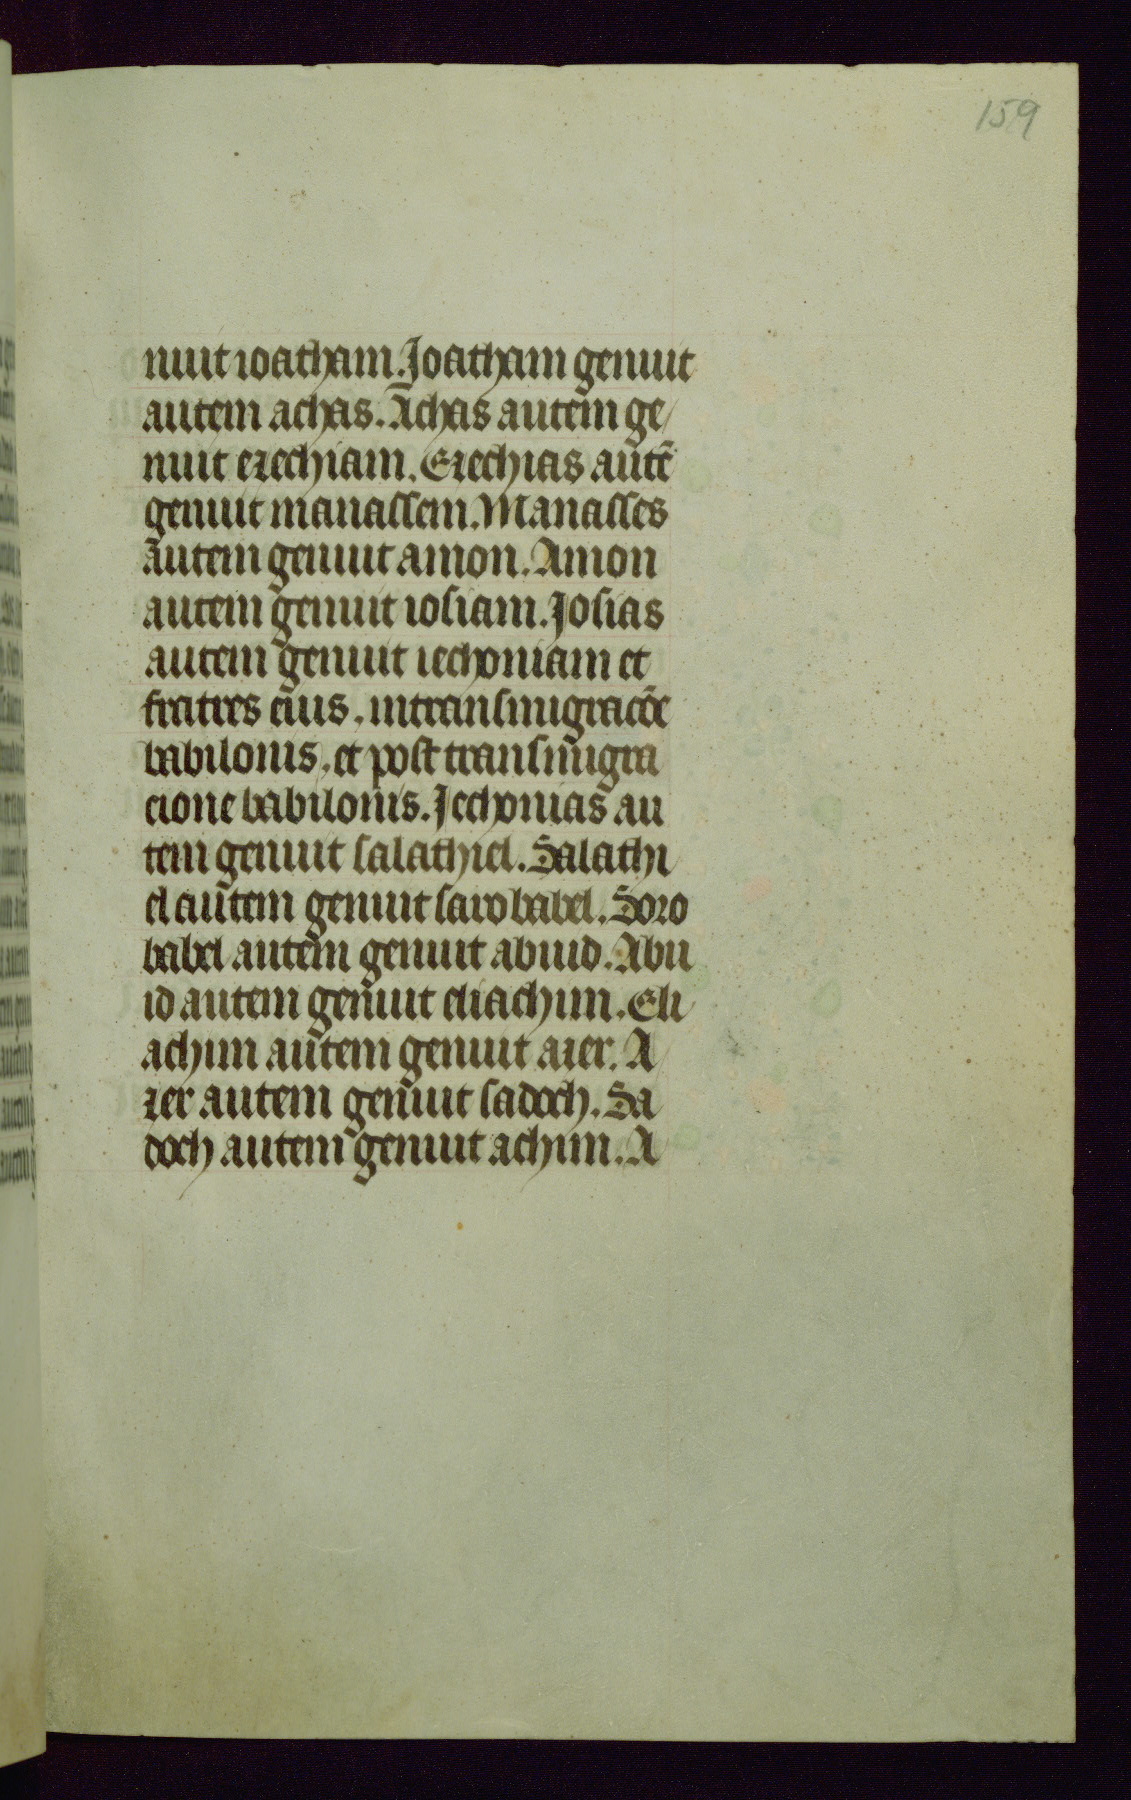 159
nuit ioatham. Joatham genuit
autem achas. Achas autem ge
nuit ezechiam. Ezechias autē
genuit manassem. Manasses
autem genuit amon. Amon
autem genuit iosiam. Josias
autem genuit iechoniam et
fratres eius. in transmigracōe
babilonis. et post transmigra
cione babilonis. Jechonias au
tem genuit salathiel. Salathi
el autem genuit sarobabel. Soro
babel autem genuit abiud. Abii
id autem genuit eliachim. Eli
achim autem genuit azer. A
zer autem genuit sadoch. Sa
doch autem genuit achim. A